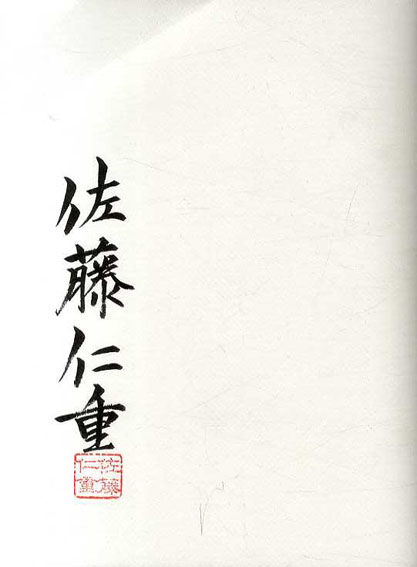 佐藤仁重
佐藤
仁重